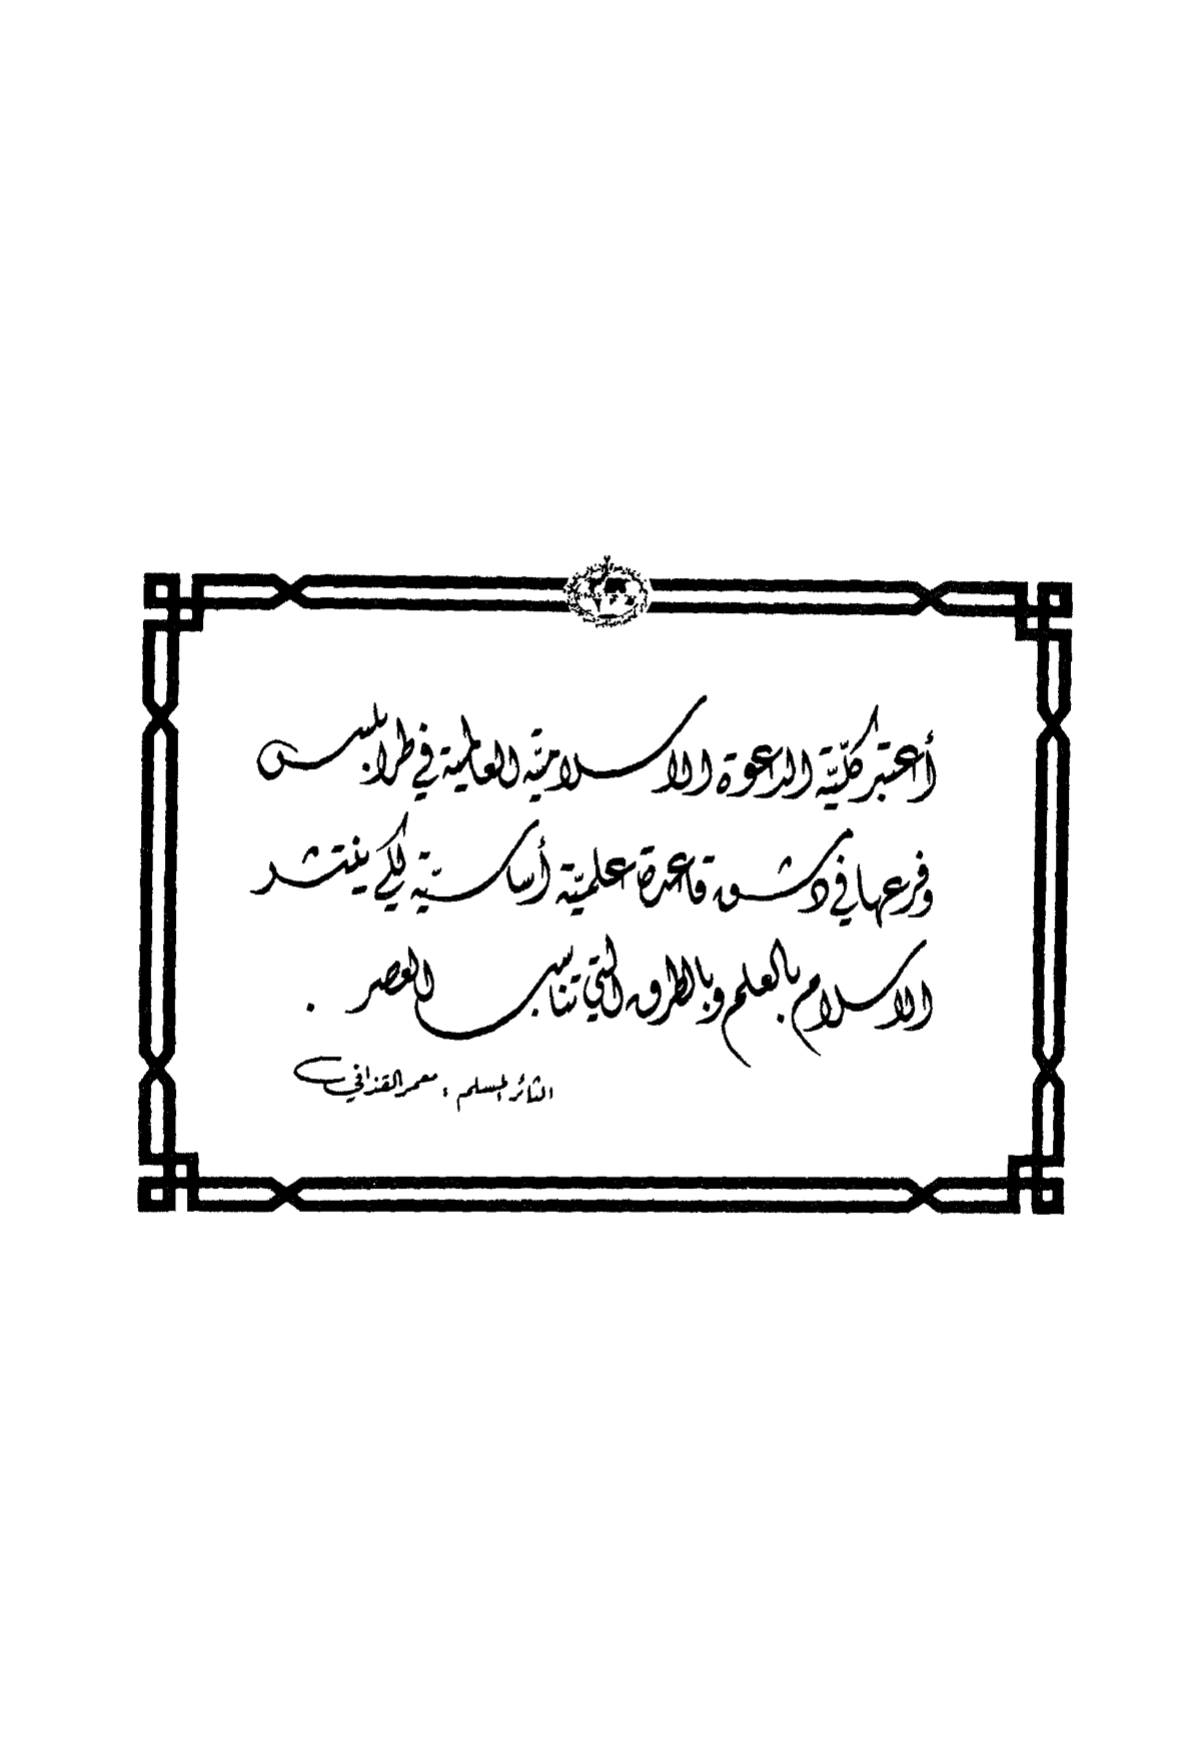 أعتبر كليّة الدعوة الاسلاميّة العالمية في طرابلس
وفرعها في دمشق قاعدة علميّة أساسيّة لكي ينتشر
الاسلام بالعلم وبالطرق التي تناسب العصر .
الثائر المسلم : معمر القذافي